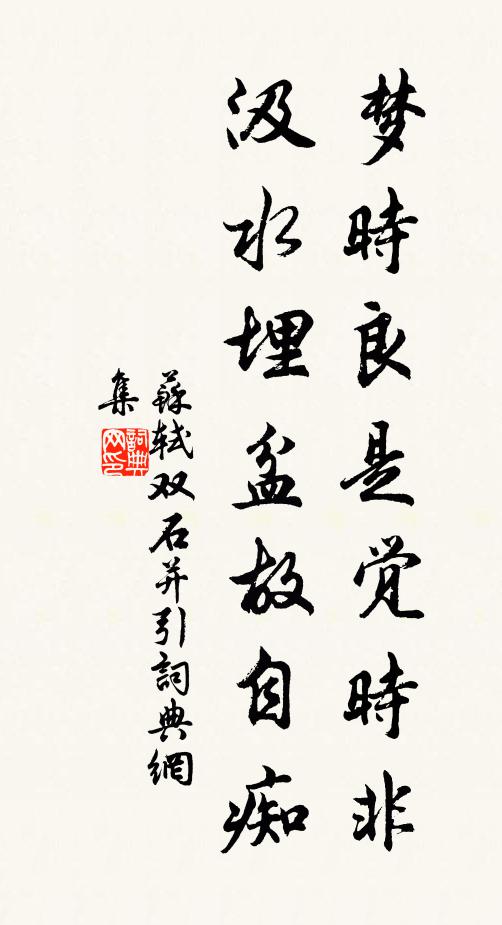 梦時良是觉時非
汲水埋盆故自痴
蘇轼双石并引詞典網
集
詞典网印